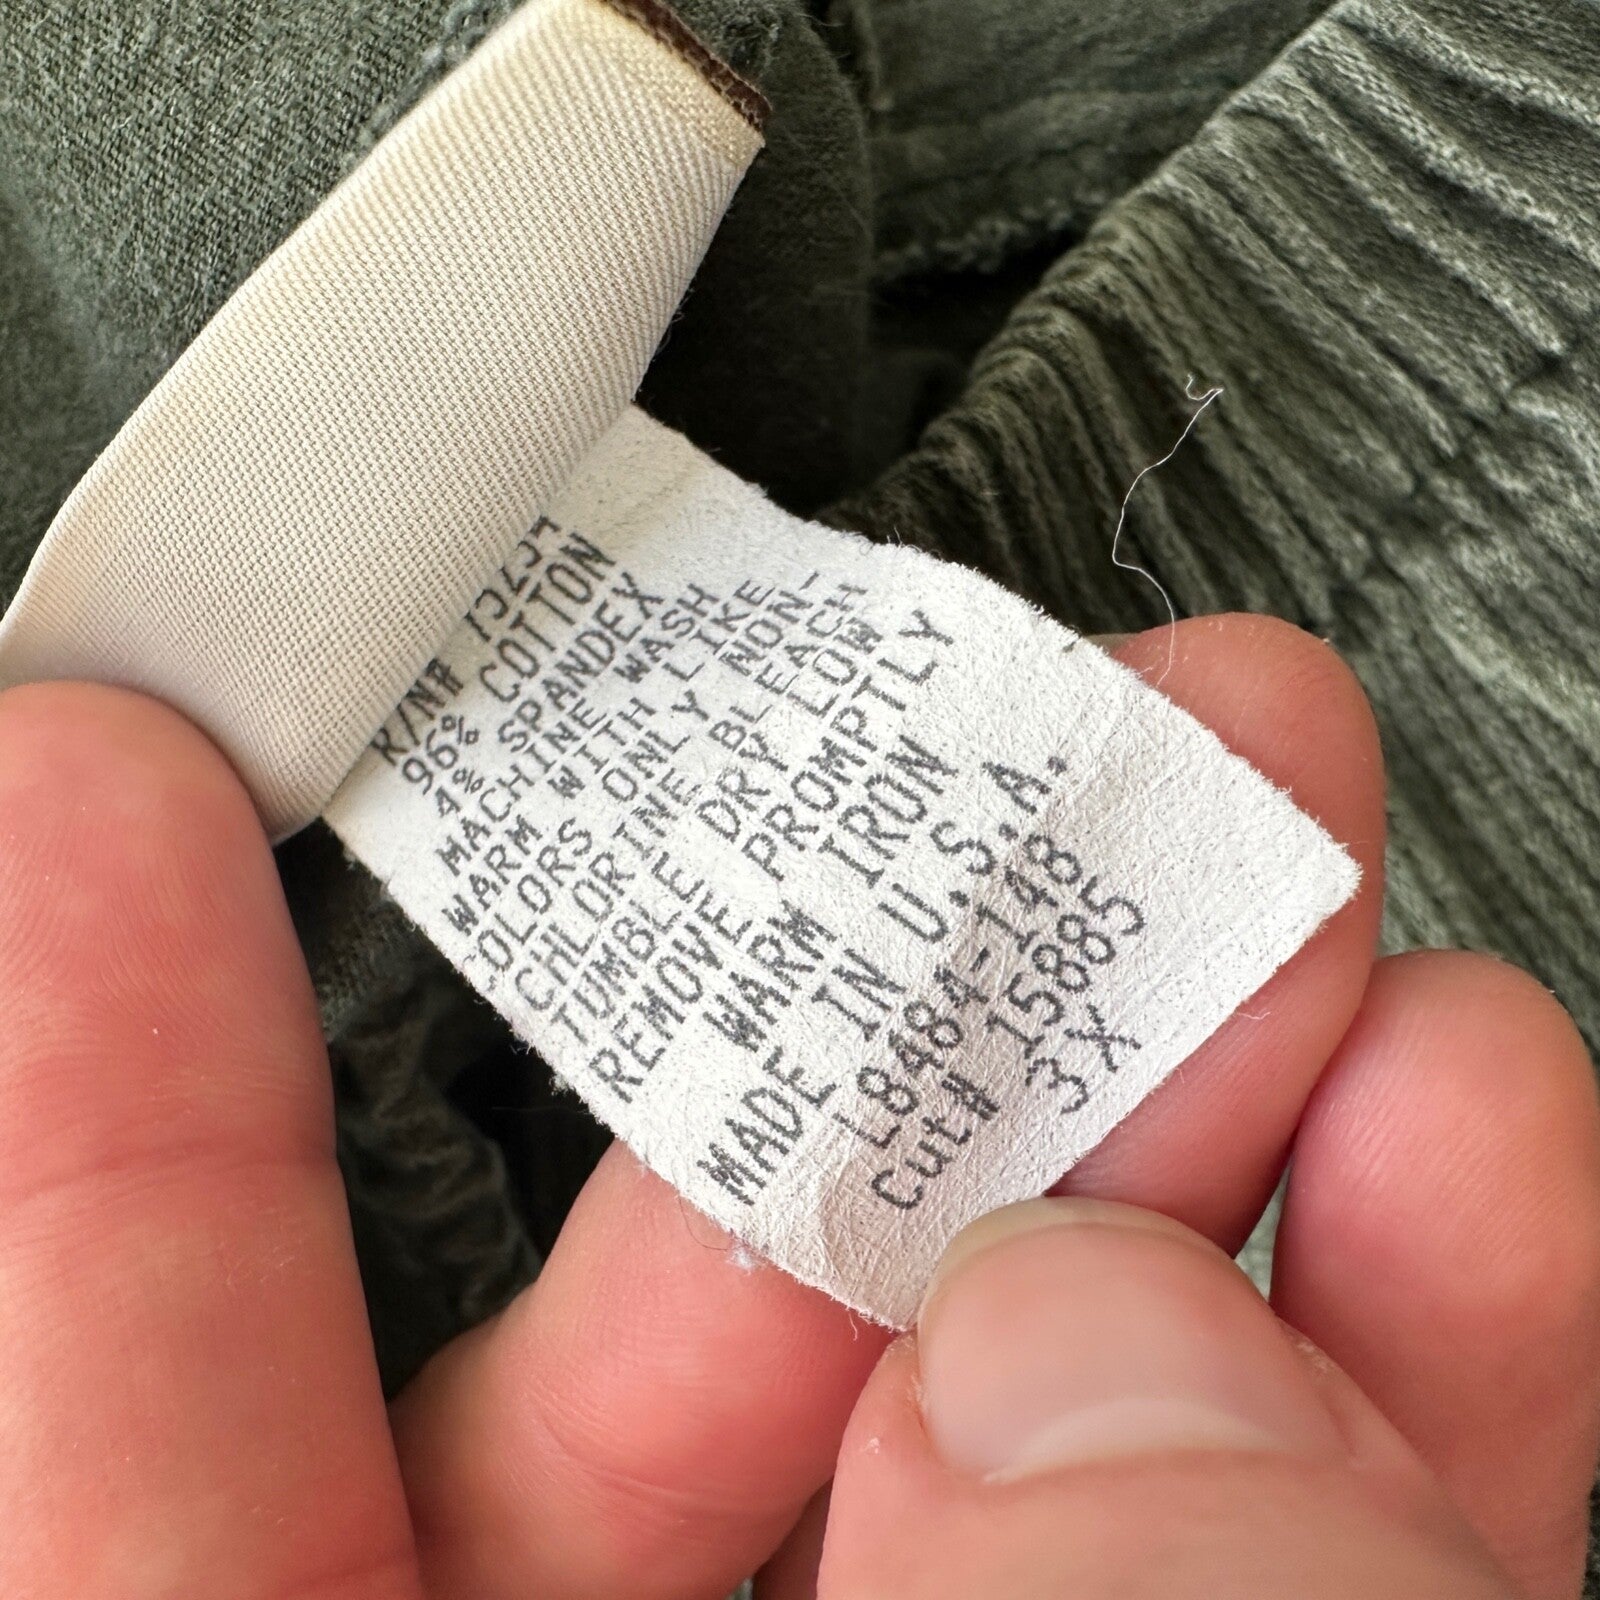 R/N# 75234
96% COTTON
4% SPANDEX
MACHINE WASH
WARM WITH LIKE
COLORS ONLY NON-
CHLORINE BLEACH
TUMBLE DRY LOW
REMOVE PROMPTLY
WARM IRON
MADE IN U.S.A.
L8484-148
Cut# 15885
3X